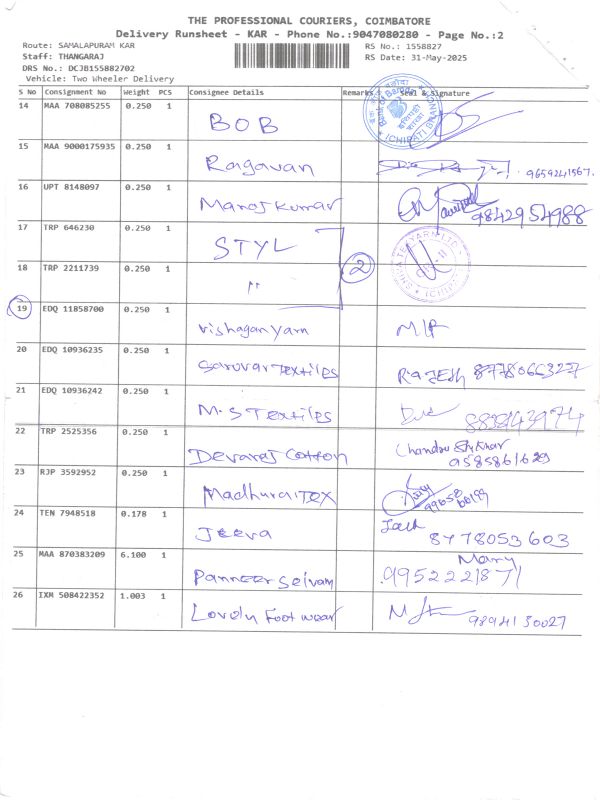 THE PROFESSIONAL COURIERS, COIMBATORE
Delivery Runsheet - KAR - Phone No.:9047080280 - Page No.:2
Route: SAMALAPURAM KAR
RS No.: 1558827
Staff: THANGARAJ
RS Date: 31-May-2025
DRS No.: DCJB155882702
Vehicle: Two Wheeler Delivery
S No Consignment No Weight PCS Consignee Details Remarks Seal & Signature
14 MAA 708085255 0.250 1 BOB
15 MAA 9000175935 0.250 1 Ragavan 9659241567.
16 UPT 8148097 0.250 1 Manoj Kumar 9842954988
17 TRP 646230 0.250 1 STYL
2
18 TRP 2211739 0.250 1 "
19 EDQ 11858700 0.250 1 Vishagan yarn M/R
20 EDQ 10936235 0.250 1 Sarovar Textiles RAJESH
21 EDQ 10936242 0.250 1 M.S Textiles
22 TRP 2525356 0.250 1 Devaraj Cotton Chandru
9585861629
23 RJP 3592952 0.250 1 Madhura TEX
24 TEN 7948518 0.178 1 Jeeva 8778053603
25 MAA 870383209 6.100 1 Panneer Selvam Mary
9952221871
26 IXM 508422352 1.003 1 Lovely Foot wear 9894130027